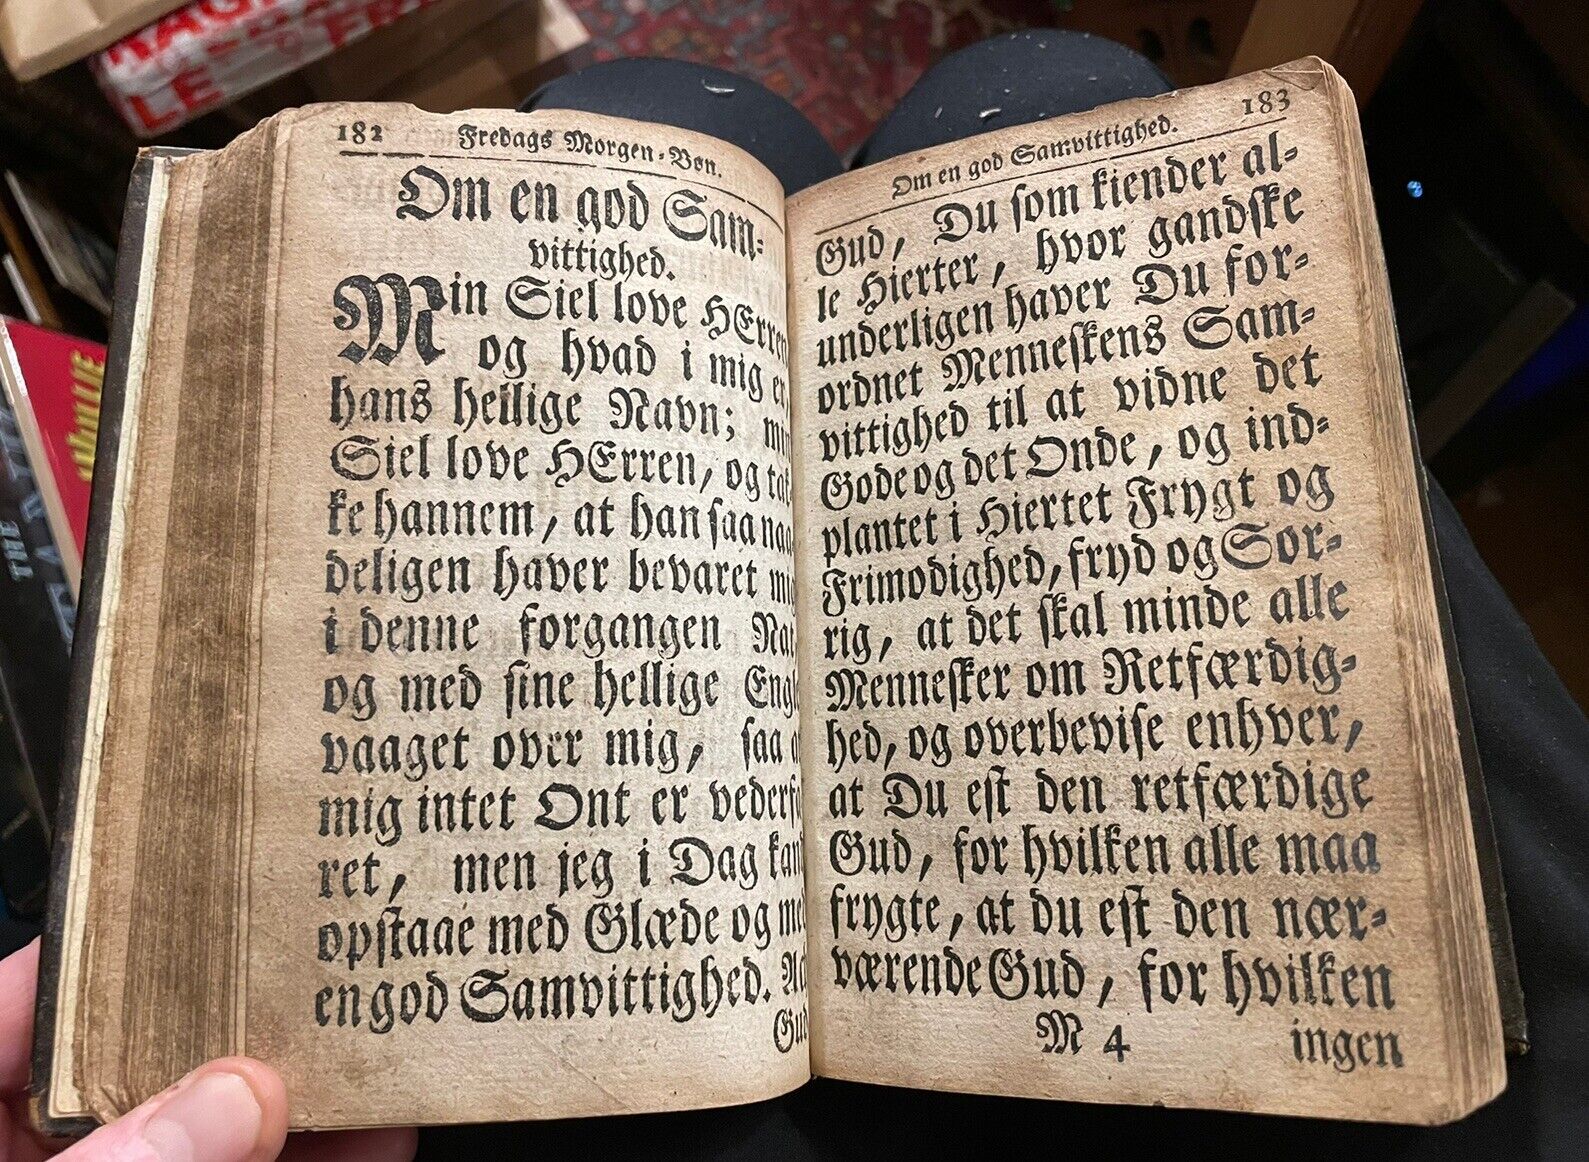 182 Fredags Morgen-Bøn.
Om en god Sam-
vittighed.
Min Siel love HErren
og hvad i mig er,
hans hellige Navn; min
Siel love HErren, og tak-
ke hannem, at han saa naa-
deligen haver bevaret mig
i denne forgangen Nat,
og med sine hellige Engle
vaaget over mig, saa at
mig intet Ont er vederfa-
ret, men jeg i Dag kand
opstaae med Glæde og med
en god Samvittighed. Ach
Gud
Om en god Samvittighed. 183
Gud, Du som kiender al-
le Hierter, hvor gandske
underligen haver Du for-
ordnet Menneskens Sam-
vittighed til at vidne det
Gode og det Onde, og ind-
plantet i Hiertet Frygt og
Frimodighed, fryd og Sor-
rig, at det skal minde alle
Mennesker om Retfærdig-
hed, og overbevise enhver,
at Du est den retfærdige
Gud, for hvilken alle maa
frygte, at du est den nær-
værende Gud, for hvilken
M 4 ingen